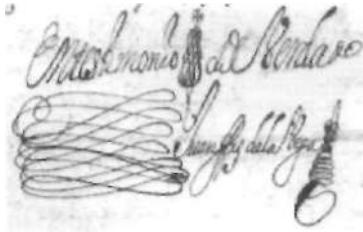 En testimonio de Verdad
Juan Fz de la Vega